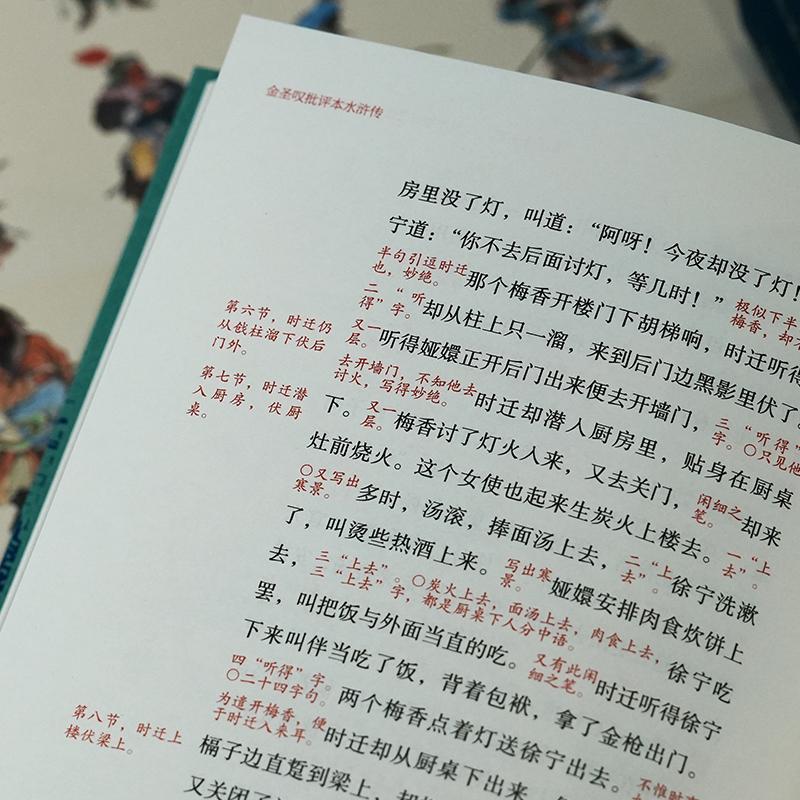 金圣叹批评本水浒传
房里没了灯，叫道：“阿呀！今夜却没了灯！
宁道：“你不去后面讨灯，等几时！”极似下半
梅香，却
半句引逗时迁
也，妙绝。那个梅香开楼门下胡梯响，时迁听得
二“听
得”字。却从柱上只一溜，来到后门边黑影里伏了。
第六节，时迁仍
从戗柱溜下伏后
门外。
又一
层。听得娅嬛正开后门出来便去开墙门，三“听得”
字。〇只见他
去开墙门，不知他去
讨火，写得妙绝。时迁却潜入厨房里，贴身在厨桌
第七节，时迁潜
入厨房，伏厨
桌。
下。又一
层。梅香讨了灯火入来，又去关门，闲细之
笔。却来
灶前烧火。这个女使也起来生炭火上楼去。一“上
去”。
〇又写出
寒景。多时，汤滚，捧面汤上去，二“上
去”。徐宁洗漱
了，叫烫些热酒上来。写出寒
景。娅嬛安排肉食炊饼上
去，三“上去”。〇炭火上去，面汤上去，肉食上去，
三“上去”字，都是厨桌下人分中语。徐宁吃
罢，叫把饭与外面当直的吃。又有此闲
细之笔。时迁听得徐宁
下来叫伴当吃了饭，背着包袱，拿了金枪出门。
四“听得”字。
〇二十四字句。两个梅香点着灯送徐宁出去。
为遣开梅香，便
于时迁入来耳。时迁却从厨桌下出来，
第八节，时迁上
楼伏梁上。
槅子边直踅到梁上，
又关闭了